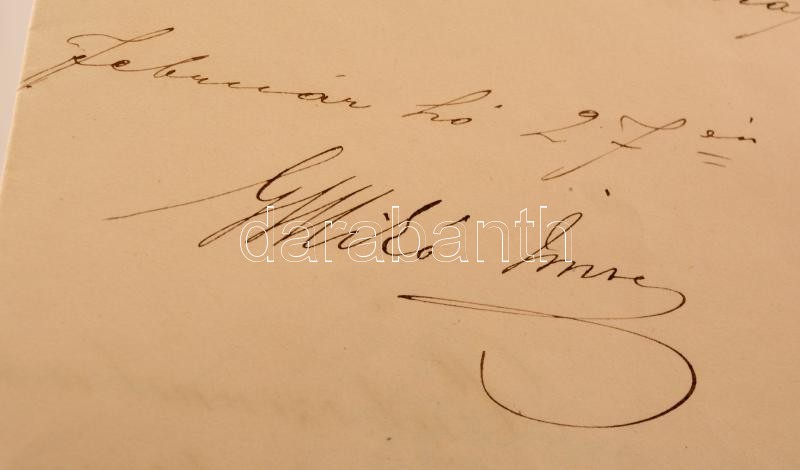 Február hó 27 én
G Mikó Imre
darabanth